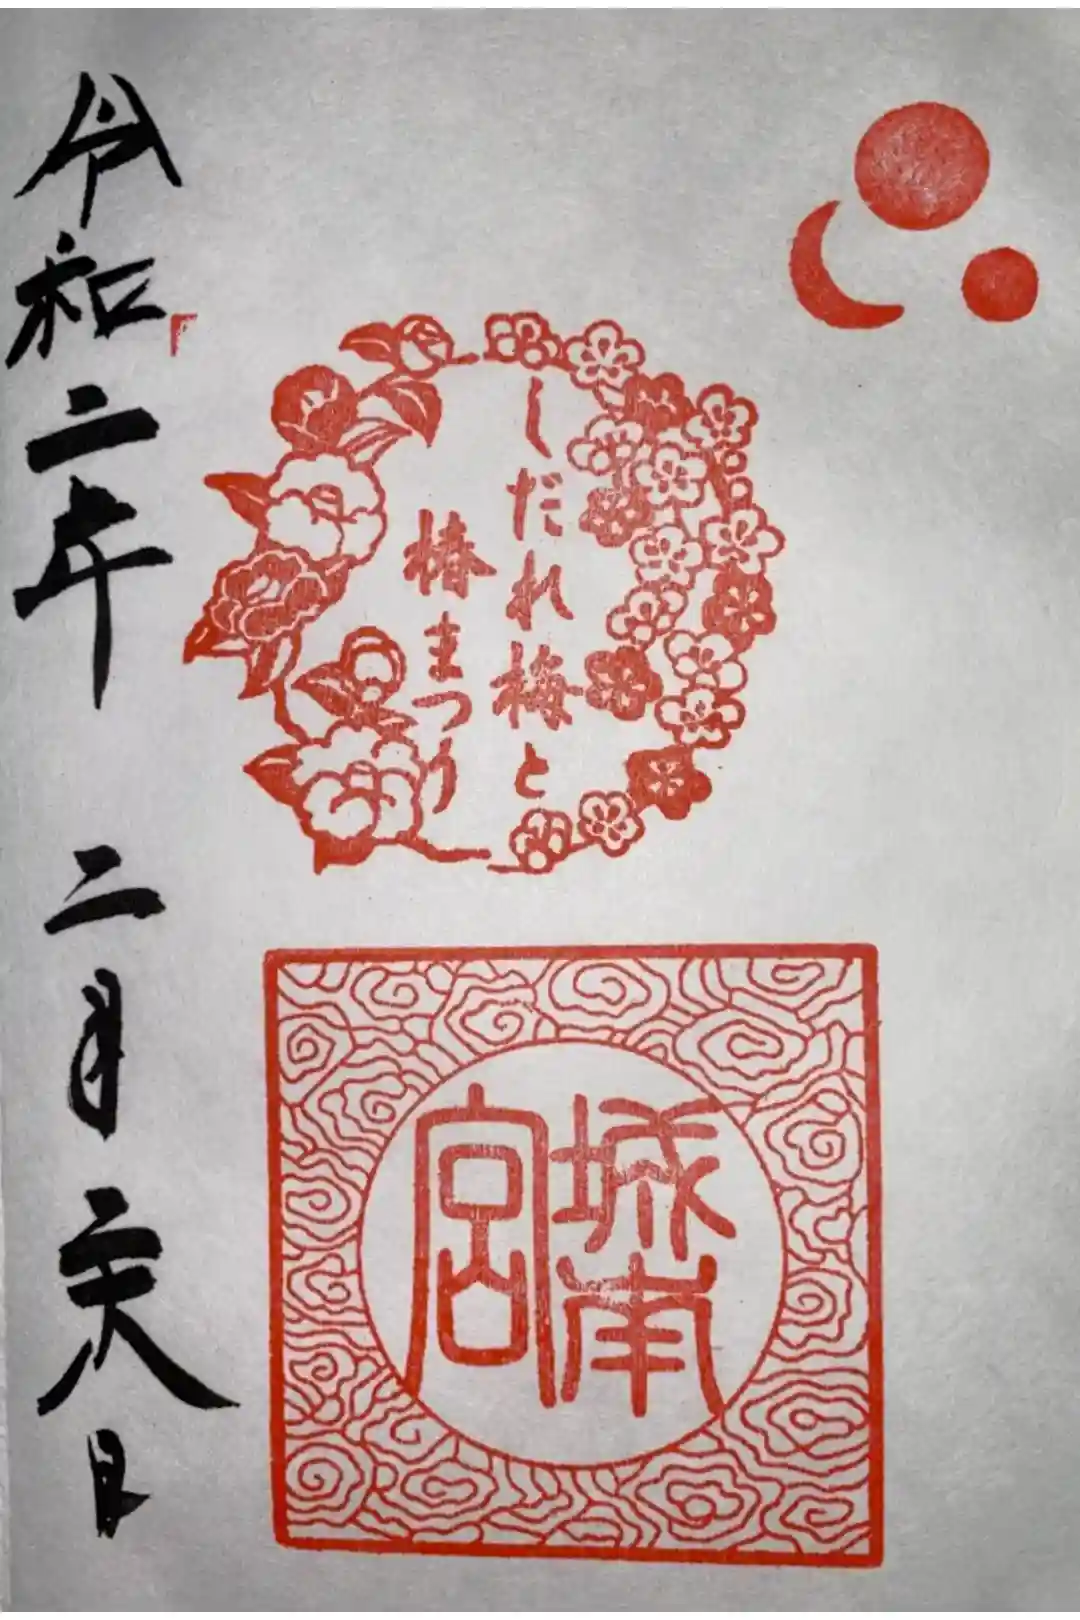 しだれ梅と
椿まつり
城南
宮
令和二年 二月二十八日